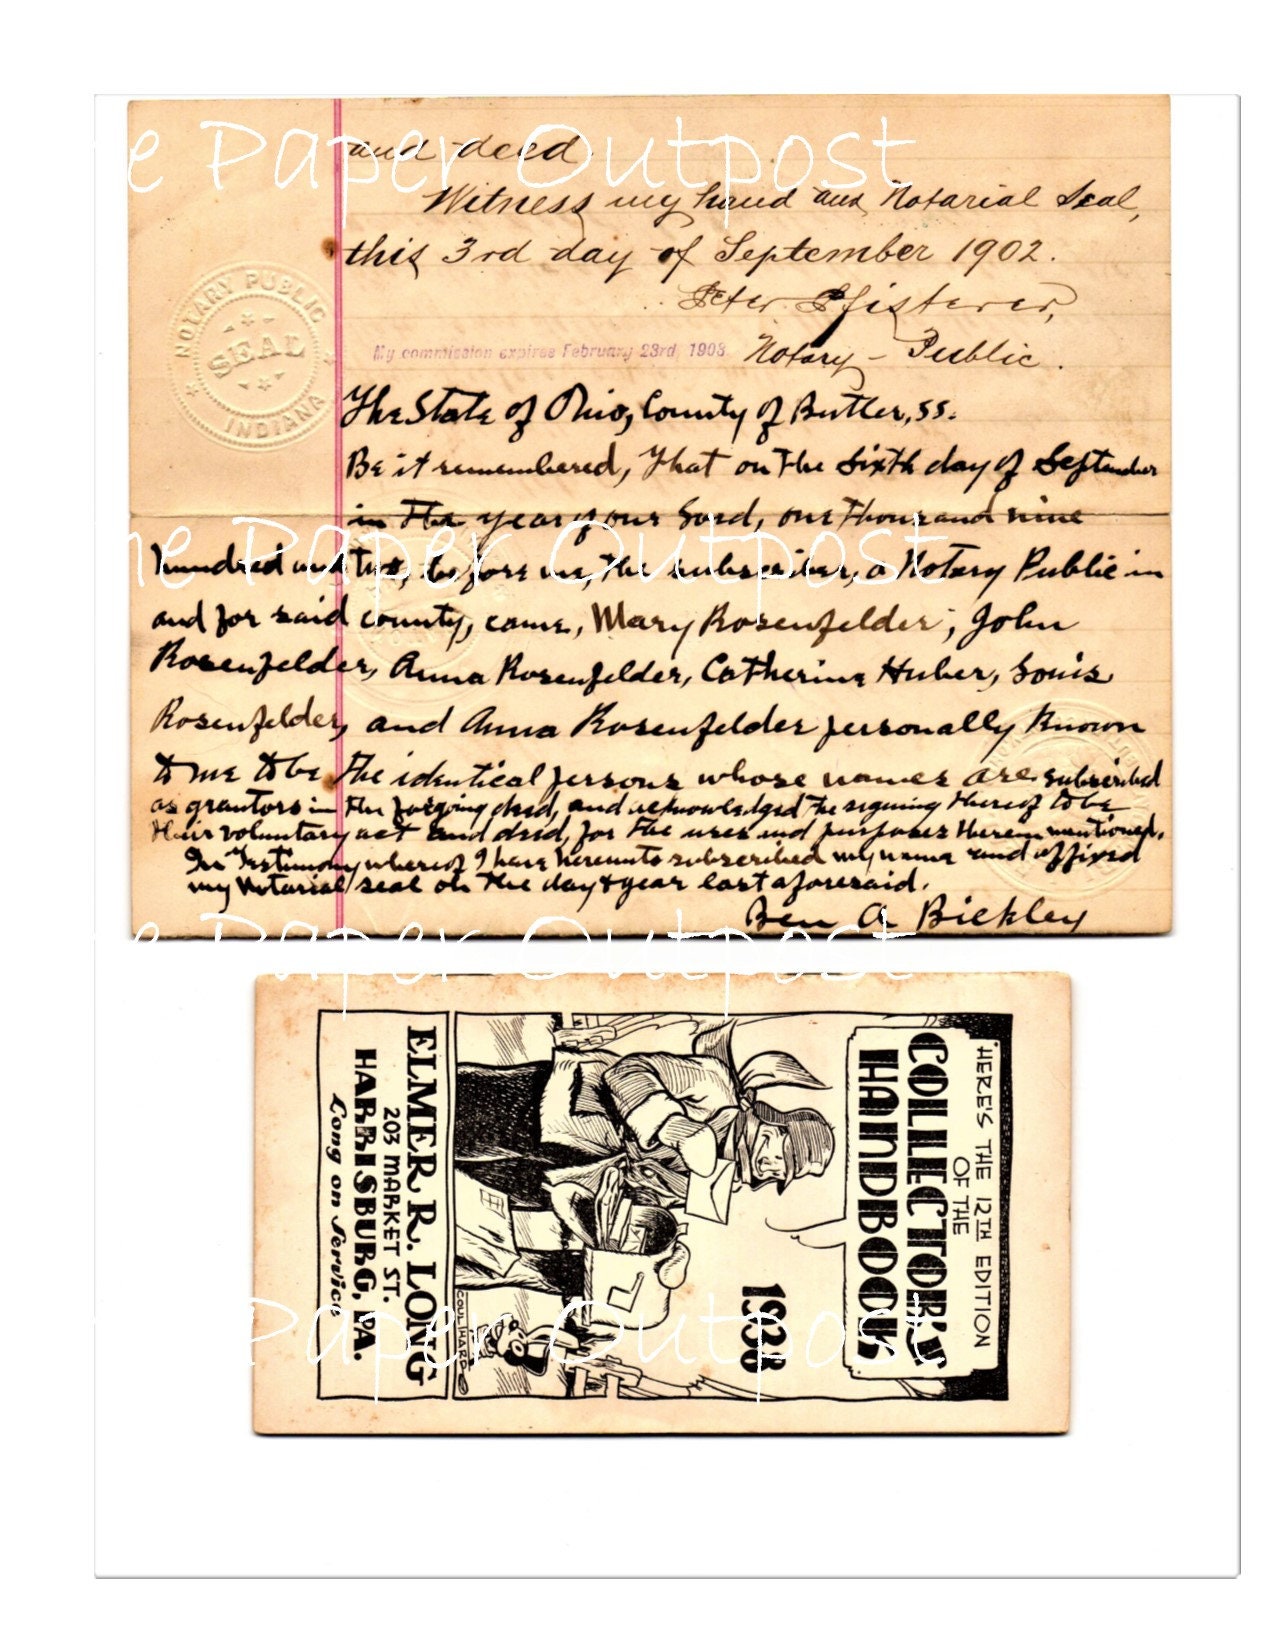 and deed.
Witness my hand and Notarial Seal,
this 3rd day of September 1902.
Peter Pfisterer,
My commission expires February 23rd, 1903. Notary - Public.
NOTARY PUBLIC
SEAL
INDIANA
The State of Ohio, County of Butler, ss.
Be it remembered, That on the Sixth day of September
in the year of our Lord, one thousand nine
hundred and two, before me, the subscriber, a Notary Public in
and for said county, came, Mary Rosenfelder, John
Rosenfelder, Anna Rosenfelder, Catherine Huber, Louis
Rosenfelder, and Anna Rosenfelder personally known
to me to be the identical persons whose names are subscribed
as grantors in the forgoing deed, and acknowledged the signing thereof to be
their voluntary act and deed, for the uses and purposes therein mentioned.
In Testimony whereof I have hereunto subscribed my name and affixed
my Notarial seal on the day & year last aforesaid.
Ben A Bickley
The Paper Outpost
The Paper Outpost
The Paper Outpost
The Paper Outpost
"HERE'S THE 12TH EDITION
OF THE
COLLECTOR'S
HANDBOOK"
1938
COULTHARD
ELMER R. LONG
203 MARKET ST.
HARRISBURG, PA.
Long on Service